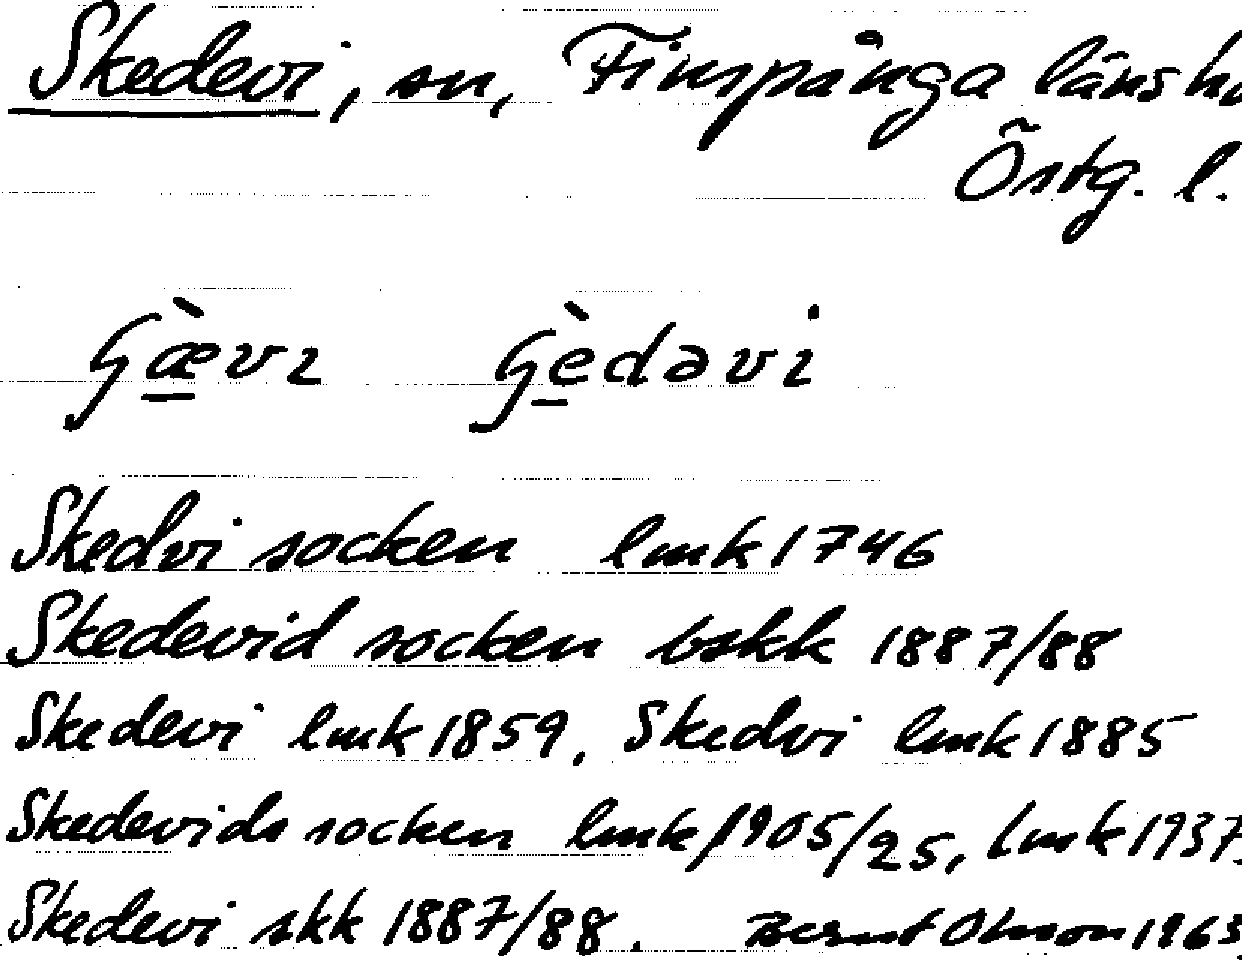 Skedevi, sn, Finspånga länshd
Östg. l.
Skedvi socken lmk 1746
Skedevid socken bskk 1887/88
Skedevi lmk 1859, Skedvi lmk 1885
Skedevids socken lmk 1905/25, lmk 1937.
Skedevi skk 1887/88. Bernt Olsson 1963